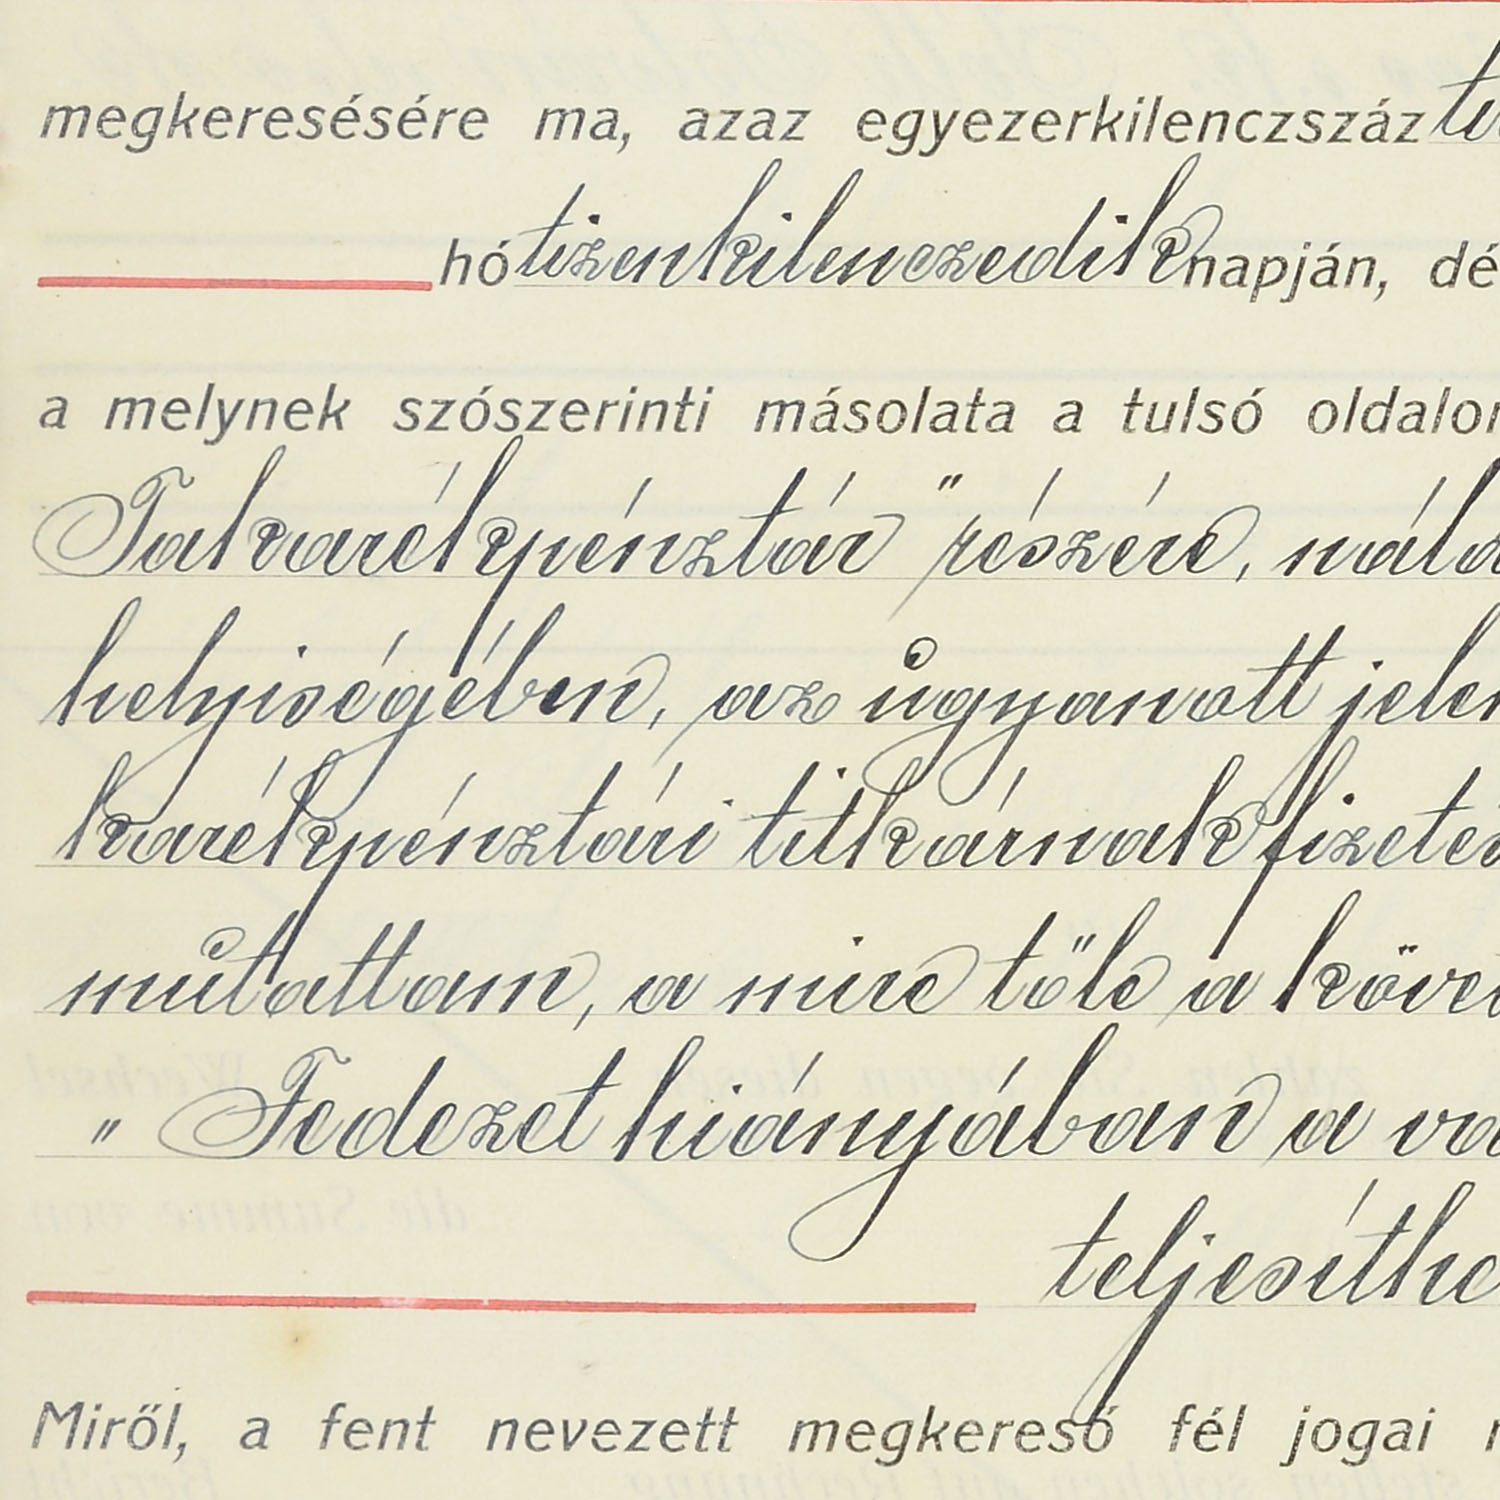 megkeresésére ma, azaz egyezerkilenczszáz
hó tizenkilenczedik napján, dé
a melynek szószerinti másolata a tulsó oldalon
Takarékpénztár" részére, nála
helyiségében, az ugyanott jelen
karékpénztári titkárnak fizetés
mutattam, a mire tőle a követ
"Fedezet hiányában a vá
teljesíthe
Miről, a fent nevezett megkereső fél jogai